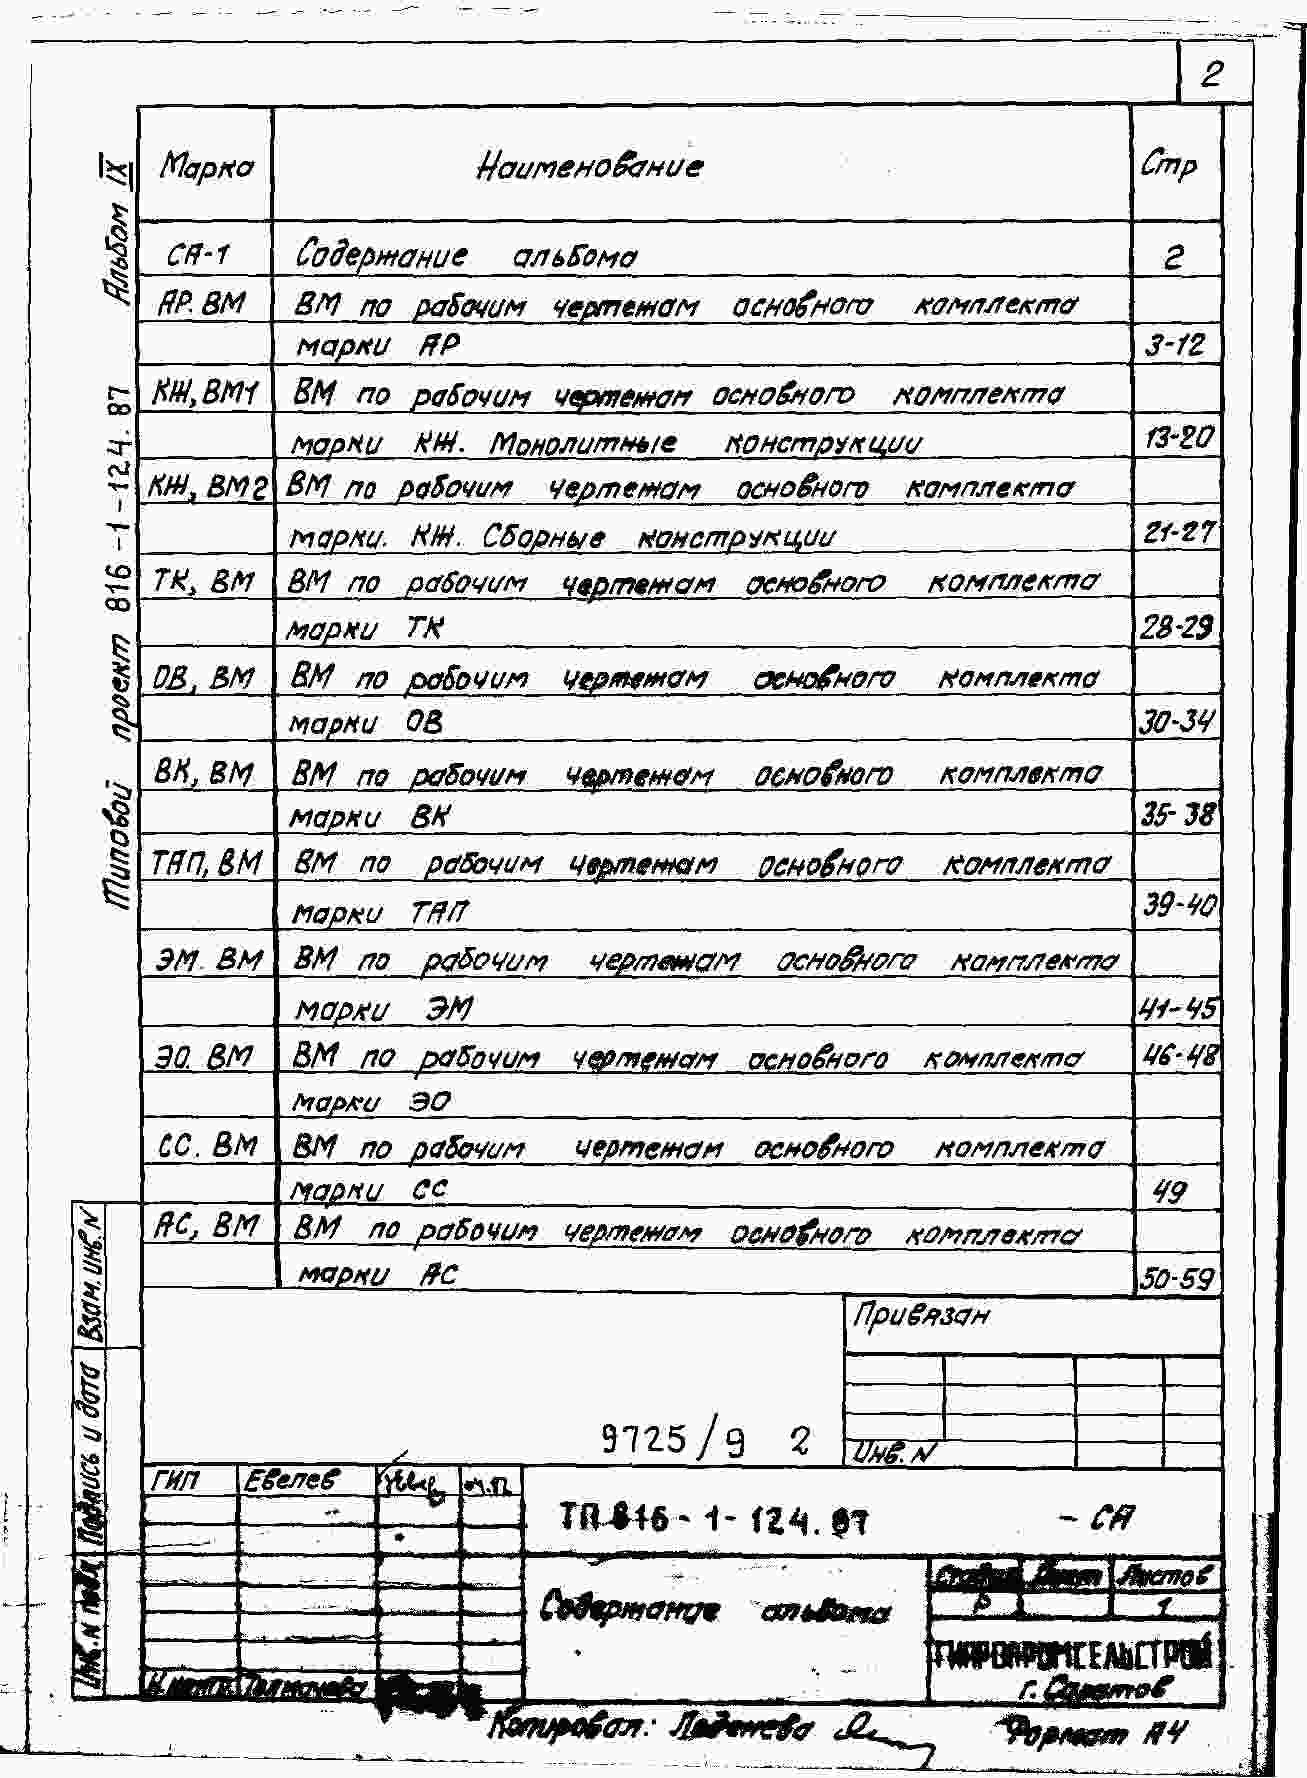 2
Альбом IX
Типовой проект 816-1-124.87
Марка Наименование Стр
СА-1 Содержание альбома 2
АР. ВМ ВМ по рабочим чертежам основного комплекта
марки АР 3-12
КЖ, ВМ1 ВМ по рабочим чертежам основного комплекта
марки КЖ. Монолитные конструкции 13-20
КЖ, ВМ2 ВМ по рабочим чертежам основного комплекта
марки. КЖ. Сборные конструкции 21-27
ТК, ВМ ВМ по рабочим чертежам основного комплекта
марки ТК 28-29
ОВ, ВМ ВМ по рабочим чертежам основного комплекта
марки ОВ 30-34
ВК, ВМ ВМ по рабочим чертежам основного комплекта
марки ВК 35-38
ТАП, ВМ ВМ по рабочим чертежам основного комплекта
марки ТАП 39-40
ЭМ. ВМ ВМ по рабочим чертежам основного комплекта
марки ЭМ 41-45
ЭО. ВМ ВМ по рабочим чертежам основного комплекта 46-48
марки ЭО
СС. ВМ ВМ по рабочим чертежам основного комплекта
марки СС 49
АС, ВМ ВМ по рабочим чертежам основного комплекта
марки АС 50-59
Взам. инв. N
Подпись и дата
Инв. N подл
Привязан
Инв. N
9725/9 2
ГИП Евелев
ТП 816-1-124.87 -СА
Содержание альбома
Стадия Лист Листов
Р 1
ГИПРОПРОМСЕЛЬСТРОЙ
г. Саратов
Н. контр. Толмачева
Копировал: Леденева
Формат А4